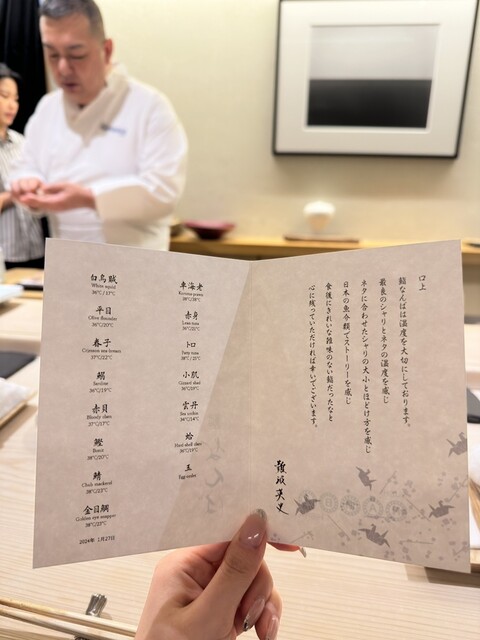 白烏賊
White squid
36℃/17℃
平目
Olive flounder
36℃/20℃
春子
Crimson sea bream
37℃/22℃
鰯
Sardine
36℃/19℃
赤貝
Bloody clam
37℃/17℃
鰹
Bonit
38℃/20℃
鯖
Chub mackerel
38℃/23℃
金目鯛
Golden eye snapper
38℃/23℃
2024年 1月27日
車海老
Kuruma prawn
38℃/38℃
赤身
Lean tuna
36℃/21℃
トロ
Fatty tuna
38℃/21℃
小肌
Gizzard shad
36℃/19℃
雲丹
Sea urchin
34℃/14℃
蛤
Hard shell clam
36℃/19℃
玉
Egg omlet
口上
鮨なんばは温度を大切にしております。
最良のシャリとネタの温度を感じ
ネタに合わせたシャリの大小とほどけ方を感じ
日本の魚介類でストーリーを感じ
食後にきれいな雑味のない鮨だったなと
心に残っていただければ幸いでございます。
難波英史